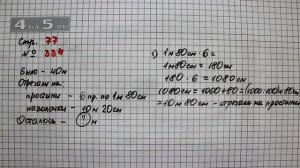 4 класс
Стр. 77
№ 334
Было - 40 м
Отрезали на:
простыни - 6 пр. по 1 м 80 см
наволочки - 10 м 20 см
Осталось - ? м
1) 1 м 80 см · 6 =
1 м 80 см = 180 см
180 · 6 = 1080 см
1080 см = 1000 + 80 = (1000:100) м 80 см
= 10 м 80 см - отрезали на простыни